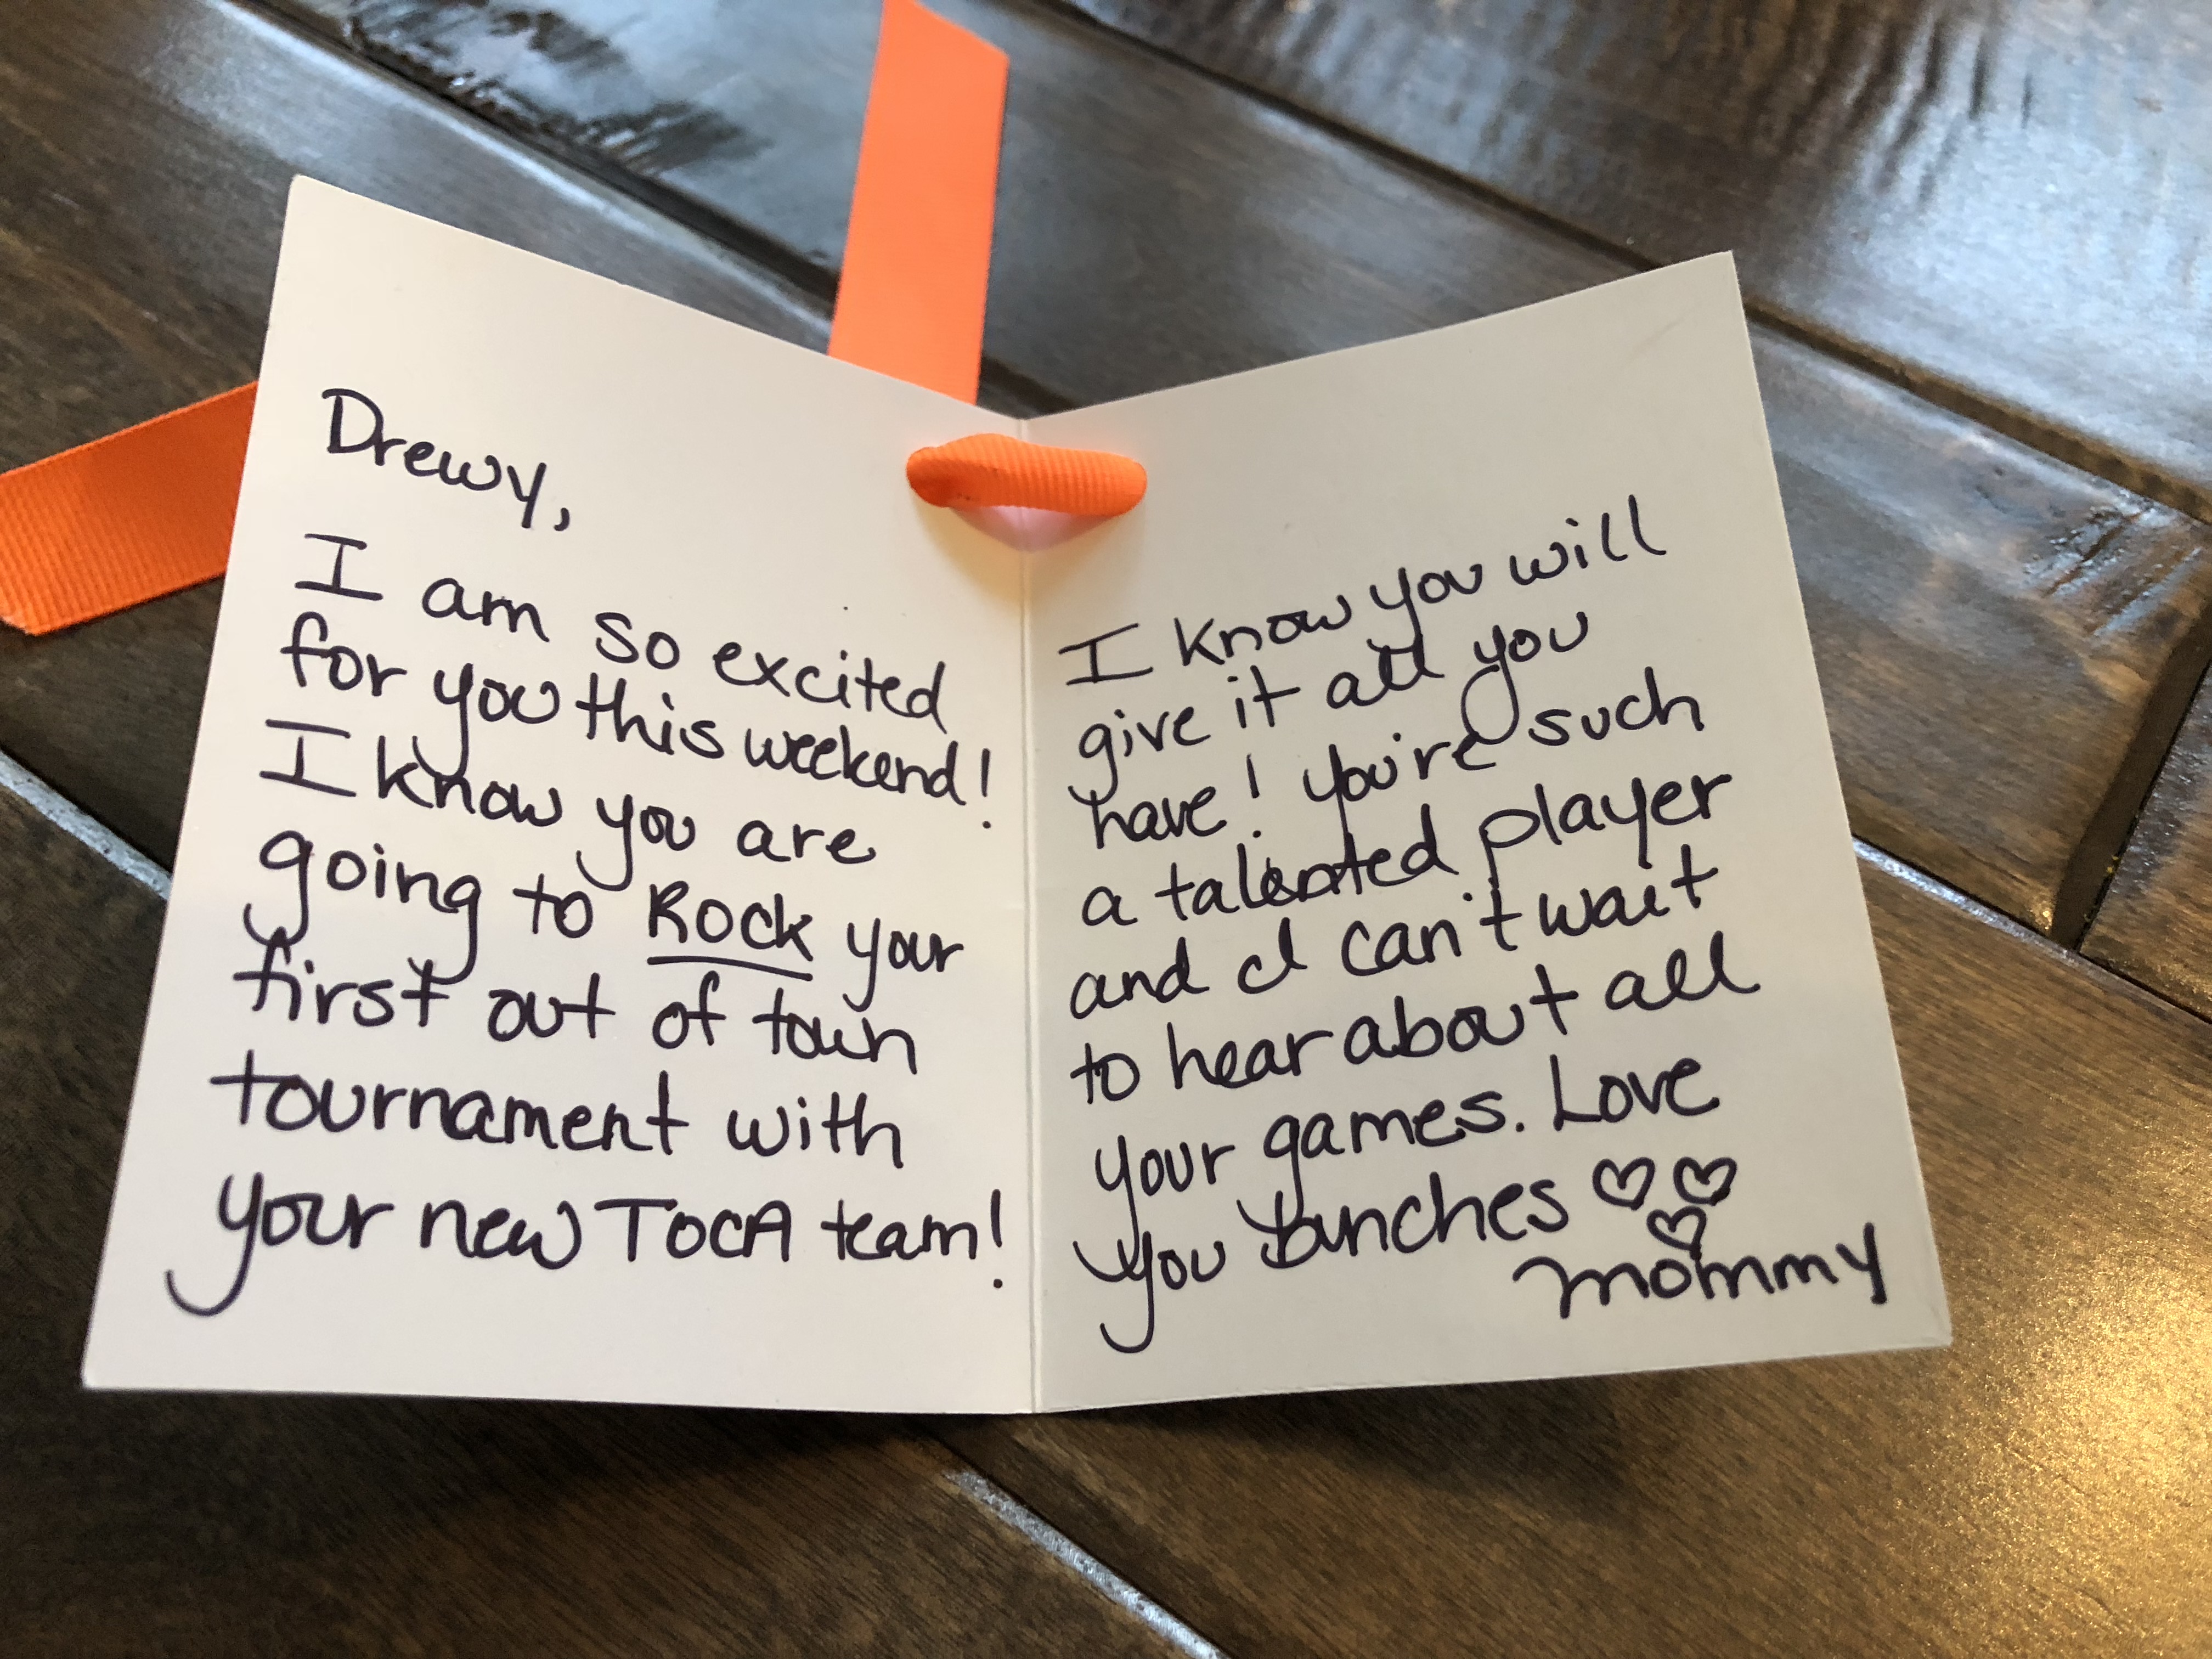 Drewy,
I am so excited
for you this weekend!
I know you are
going to Rock your
first out of town
tournament with
your new TOCA team!
I know you will
give it all you
have! You're such
a talented player
and I can't wait
to hear about all
your games. Love
you bunches ♡♡
♡
Mommy